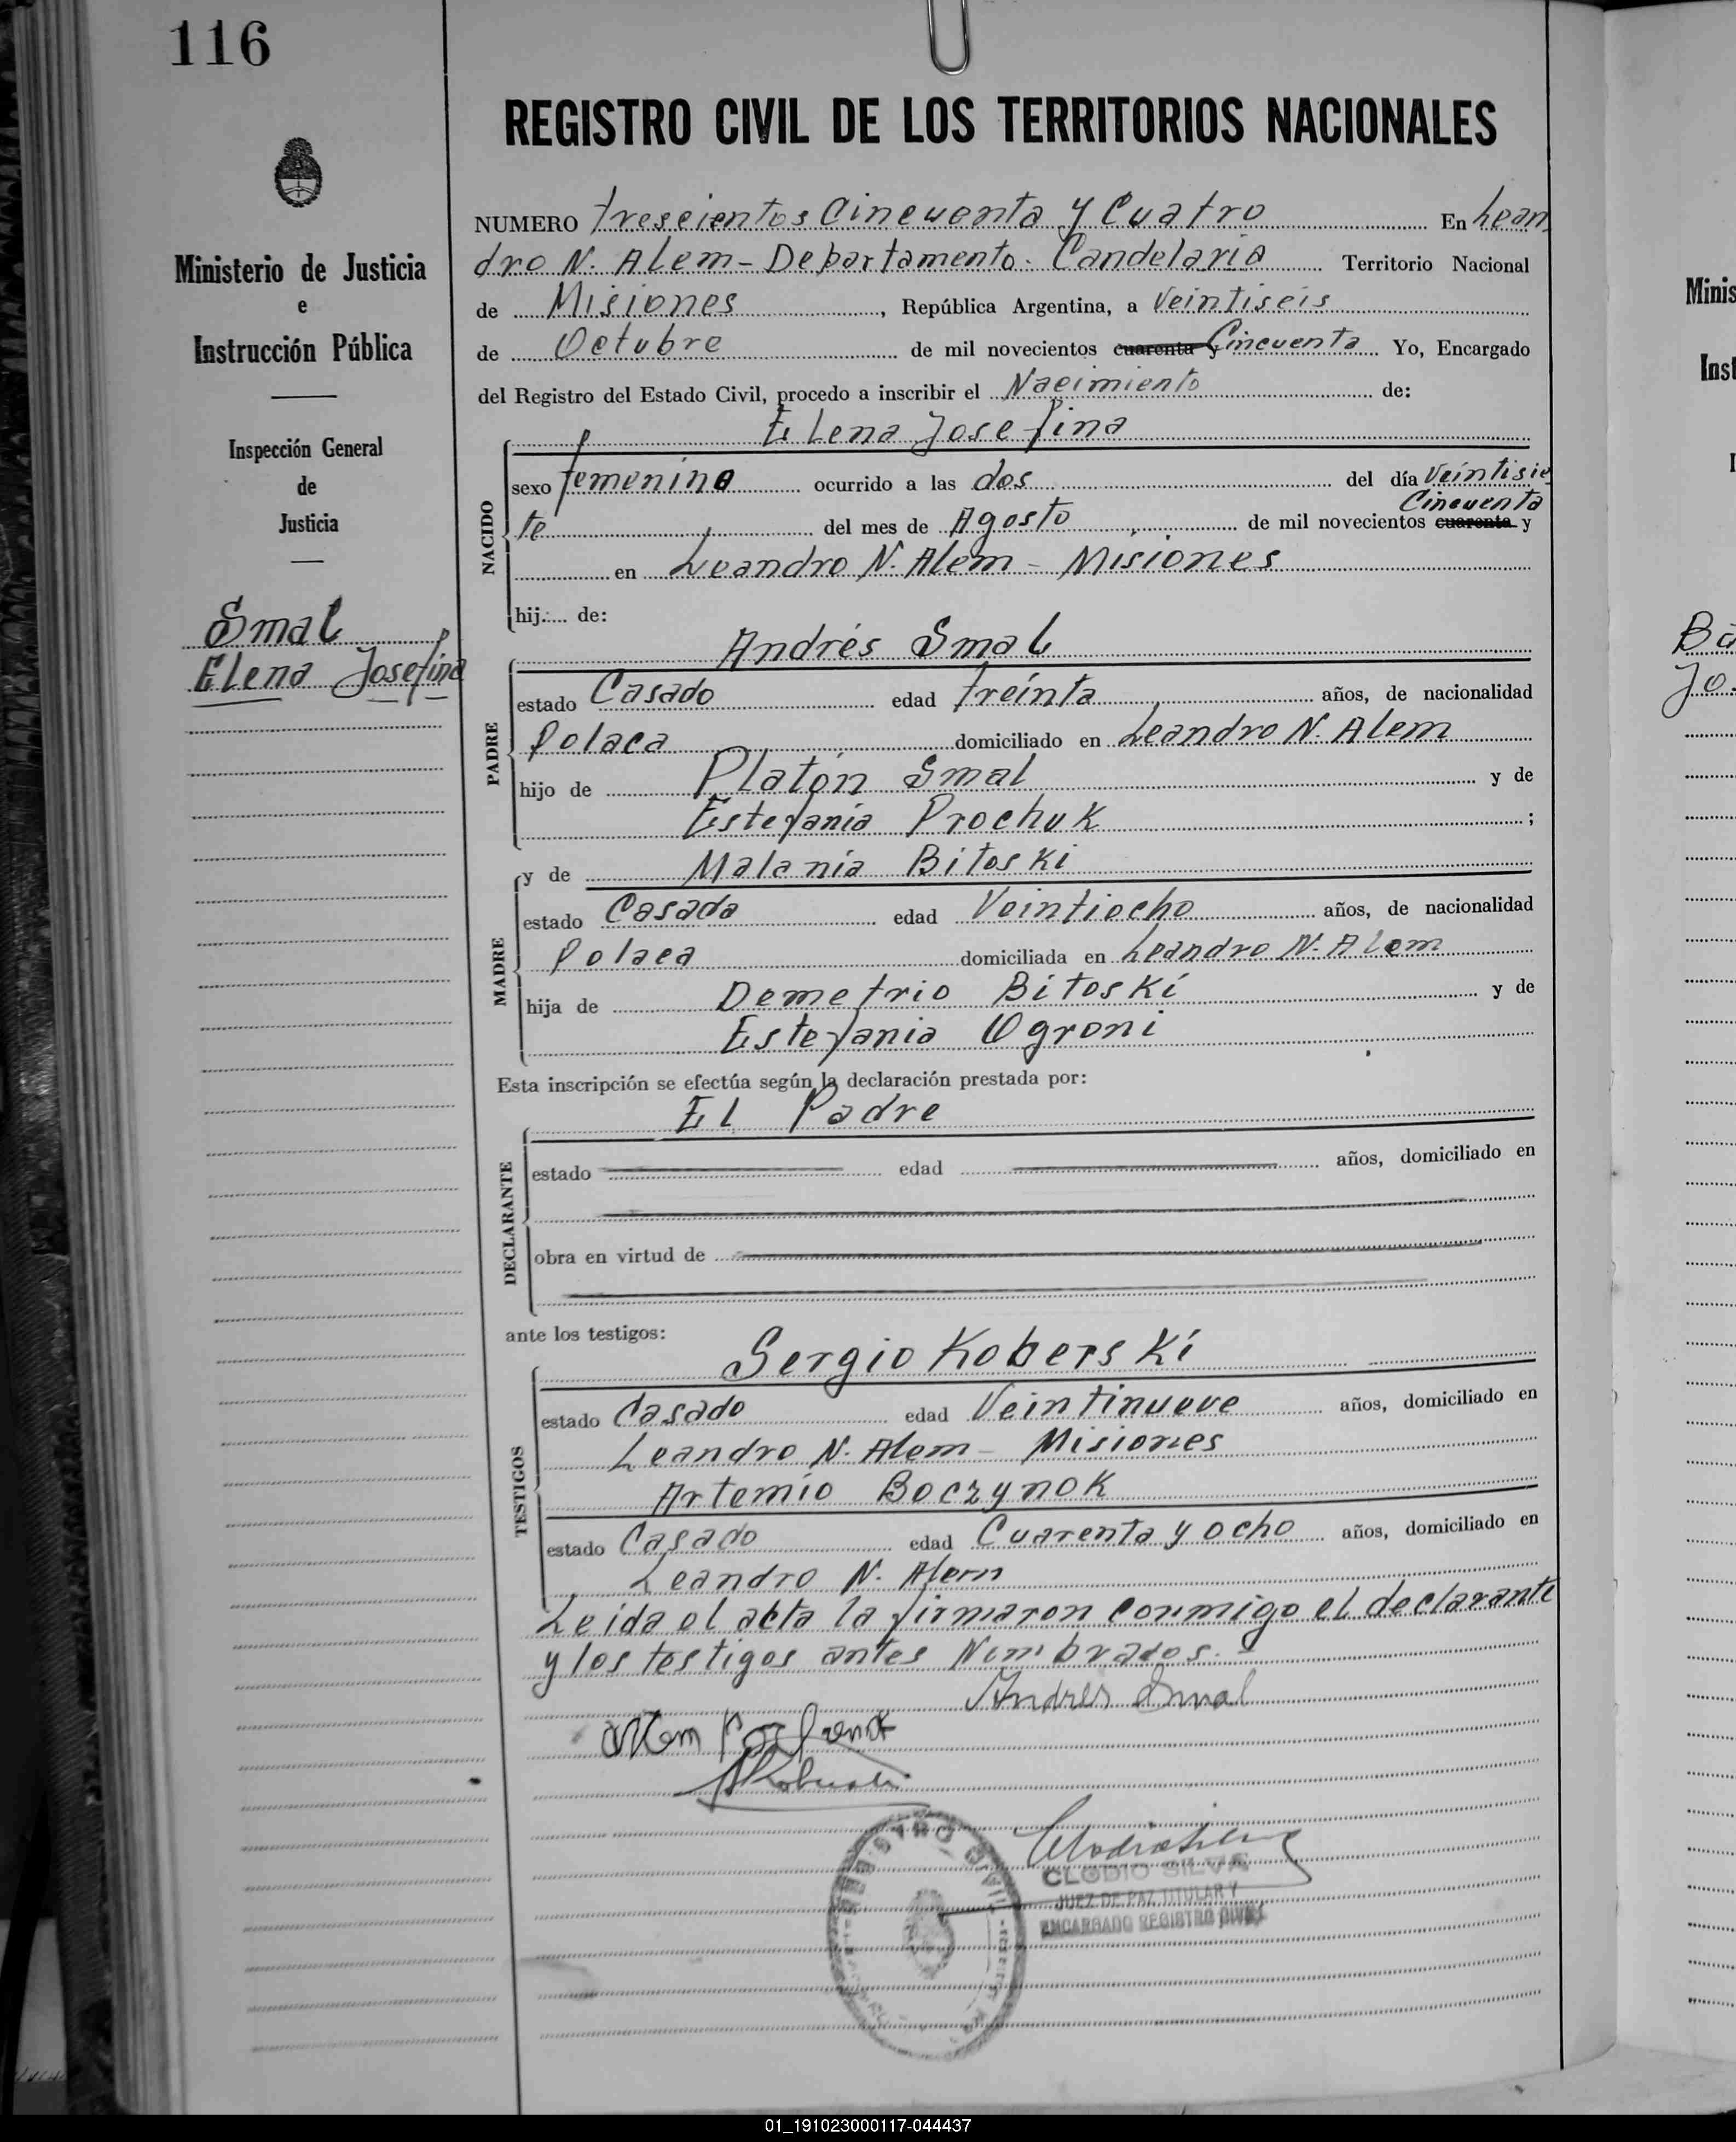 116
REGISTRO CIVIL DE LOS TERRITORIOS NACIONALES
Ministerio de Justicia
e
Instrucción Pública
Inspección General
de
Justicia
Smal
Elena Josefina
NUMERO trescientos Cincuenta y Cuatro En Lean
dro N. Alem - Departamento. Candelaria Territorio Nacional
de Misiones, República Argentina, a Veintiseis
de Octubre de mil novecientos cuarenta y Cincuenta Yo, Encargado
del Registro del Estado Civil, procedo a inscribir el Nacimiento de:
Elena Josefina
NACIDO
sexo femenino ocurrido a las dos del día Veintisie
te del mes de Agosto de mil novecientos cuarenta y Cincuenta
en Leandro N. Alem - Misiones
hij.... de:
Andrés Smal
PADRE
estado Casado edad treinta años, de nacionalidad
Polaca domiciliado en Leandro N. Alem
hijo de Platón Smal y de
Estefania Prochuk ;
y de Malania Bitoski
MADRE
estado Casada edad Veintiocho años, de nacionalidad
Polaca domiciliada en Leandro N. Alem
hija de Demetrio Bitoski y de
Estefania Ogroni
Esta inscripción se efectúa según la declaración prestada por:
El Padre
DECLARANTE
estado edad años, domiciliado en
obra en virtud de
ante los testigos:
Sergio Koberski
TESTIGOS
estado Casado edad Veintinueve años, domiciliado en
Leandro N. Alem - Misiones
Artemio Boczynok
estado Casado edad Cuarenta y ocho años, domiciliado en
Leandro N. Alem
Leida el acta la firmaron conmigo el declarante
y los testigos antes Nombrados. -
Andres Smal
CLODIO SILVA
JUEZ DE PAZ TITULAR Y
ENCARGADO REGISTRO CIVIL
REGISTRO CIVIL
Minis
Inst
Jo.
01_191023000117-044437